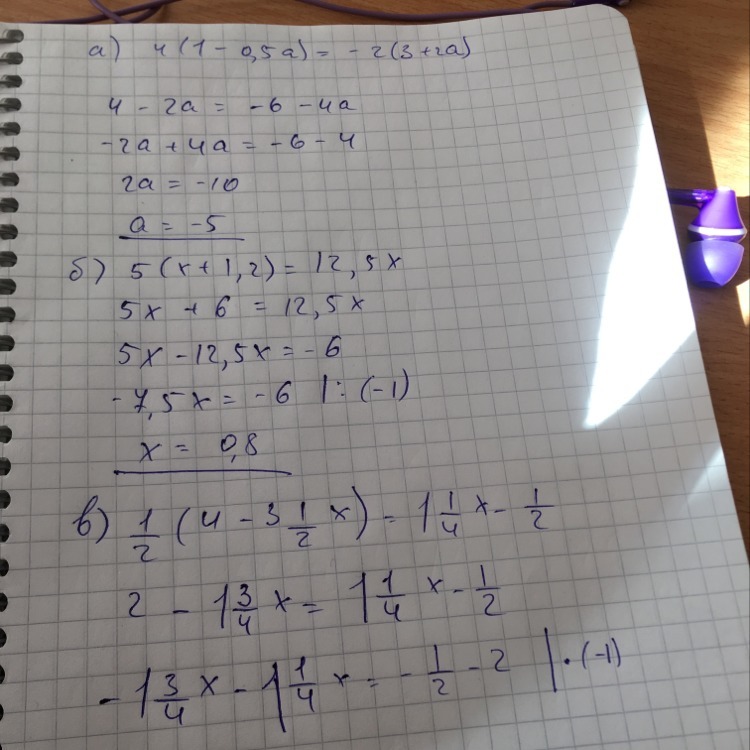 а) 4(1 - 0,5a) = -2(3+2a)
4 - 2a = -6 - 4a
-2a + 4a = -6 - 4
2a = -10
a = -5
б) 5(x + 1,2) = 12,5x
5x + 6 = 12,5x
5x - 12,5x = -6
-7,5x = -6 |: (-1)
x = 0,8
в) 1/2 (4 - 3 1/2 x) = 1 1/4 x - 1/2
2 - 1 3/4 x = 1 1/4 x - 1/2
-1 3/4 x - 1 1/4 x = -1/2 - 2 | · (-1)